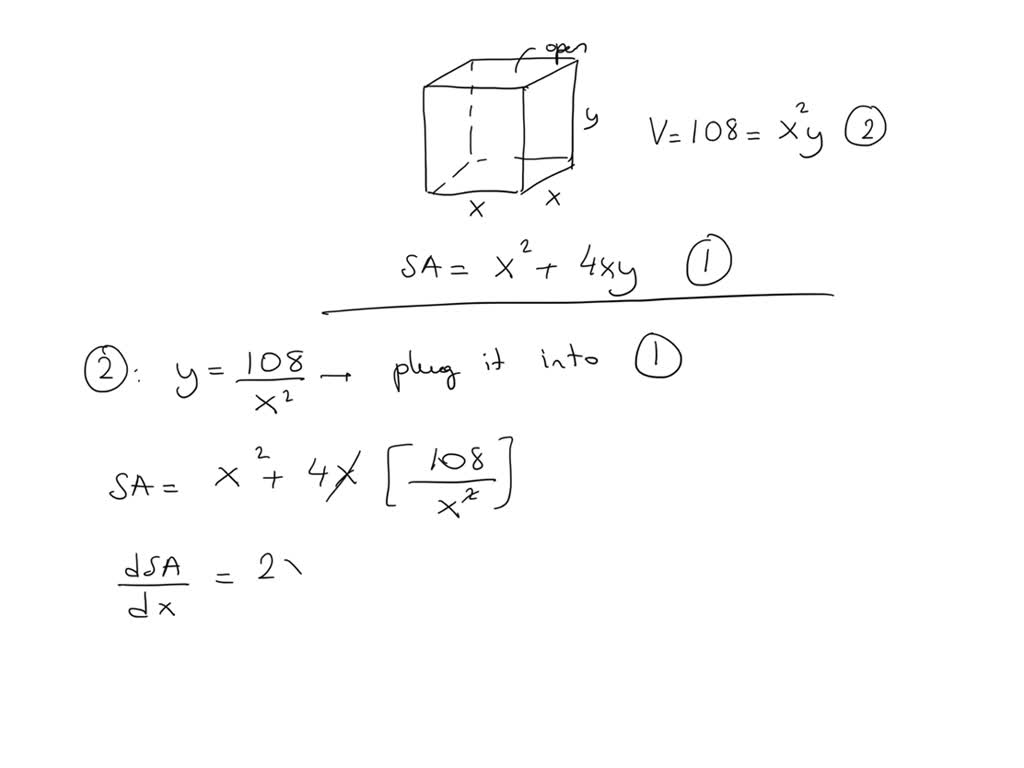 open
y
V = 108 = x²y ②
x
x
SA = x² + 4xy ①
②: y = 108/x² → plug it into ①
SA = x² + 4x [108/x²]
dSA/dx = 2